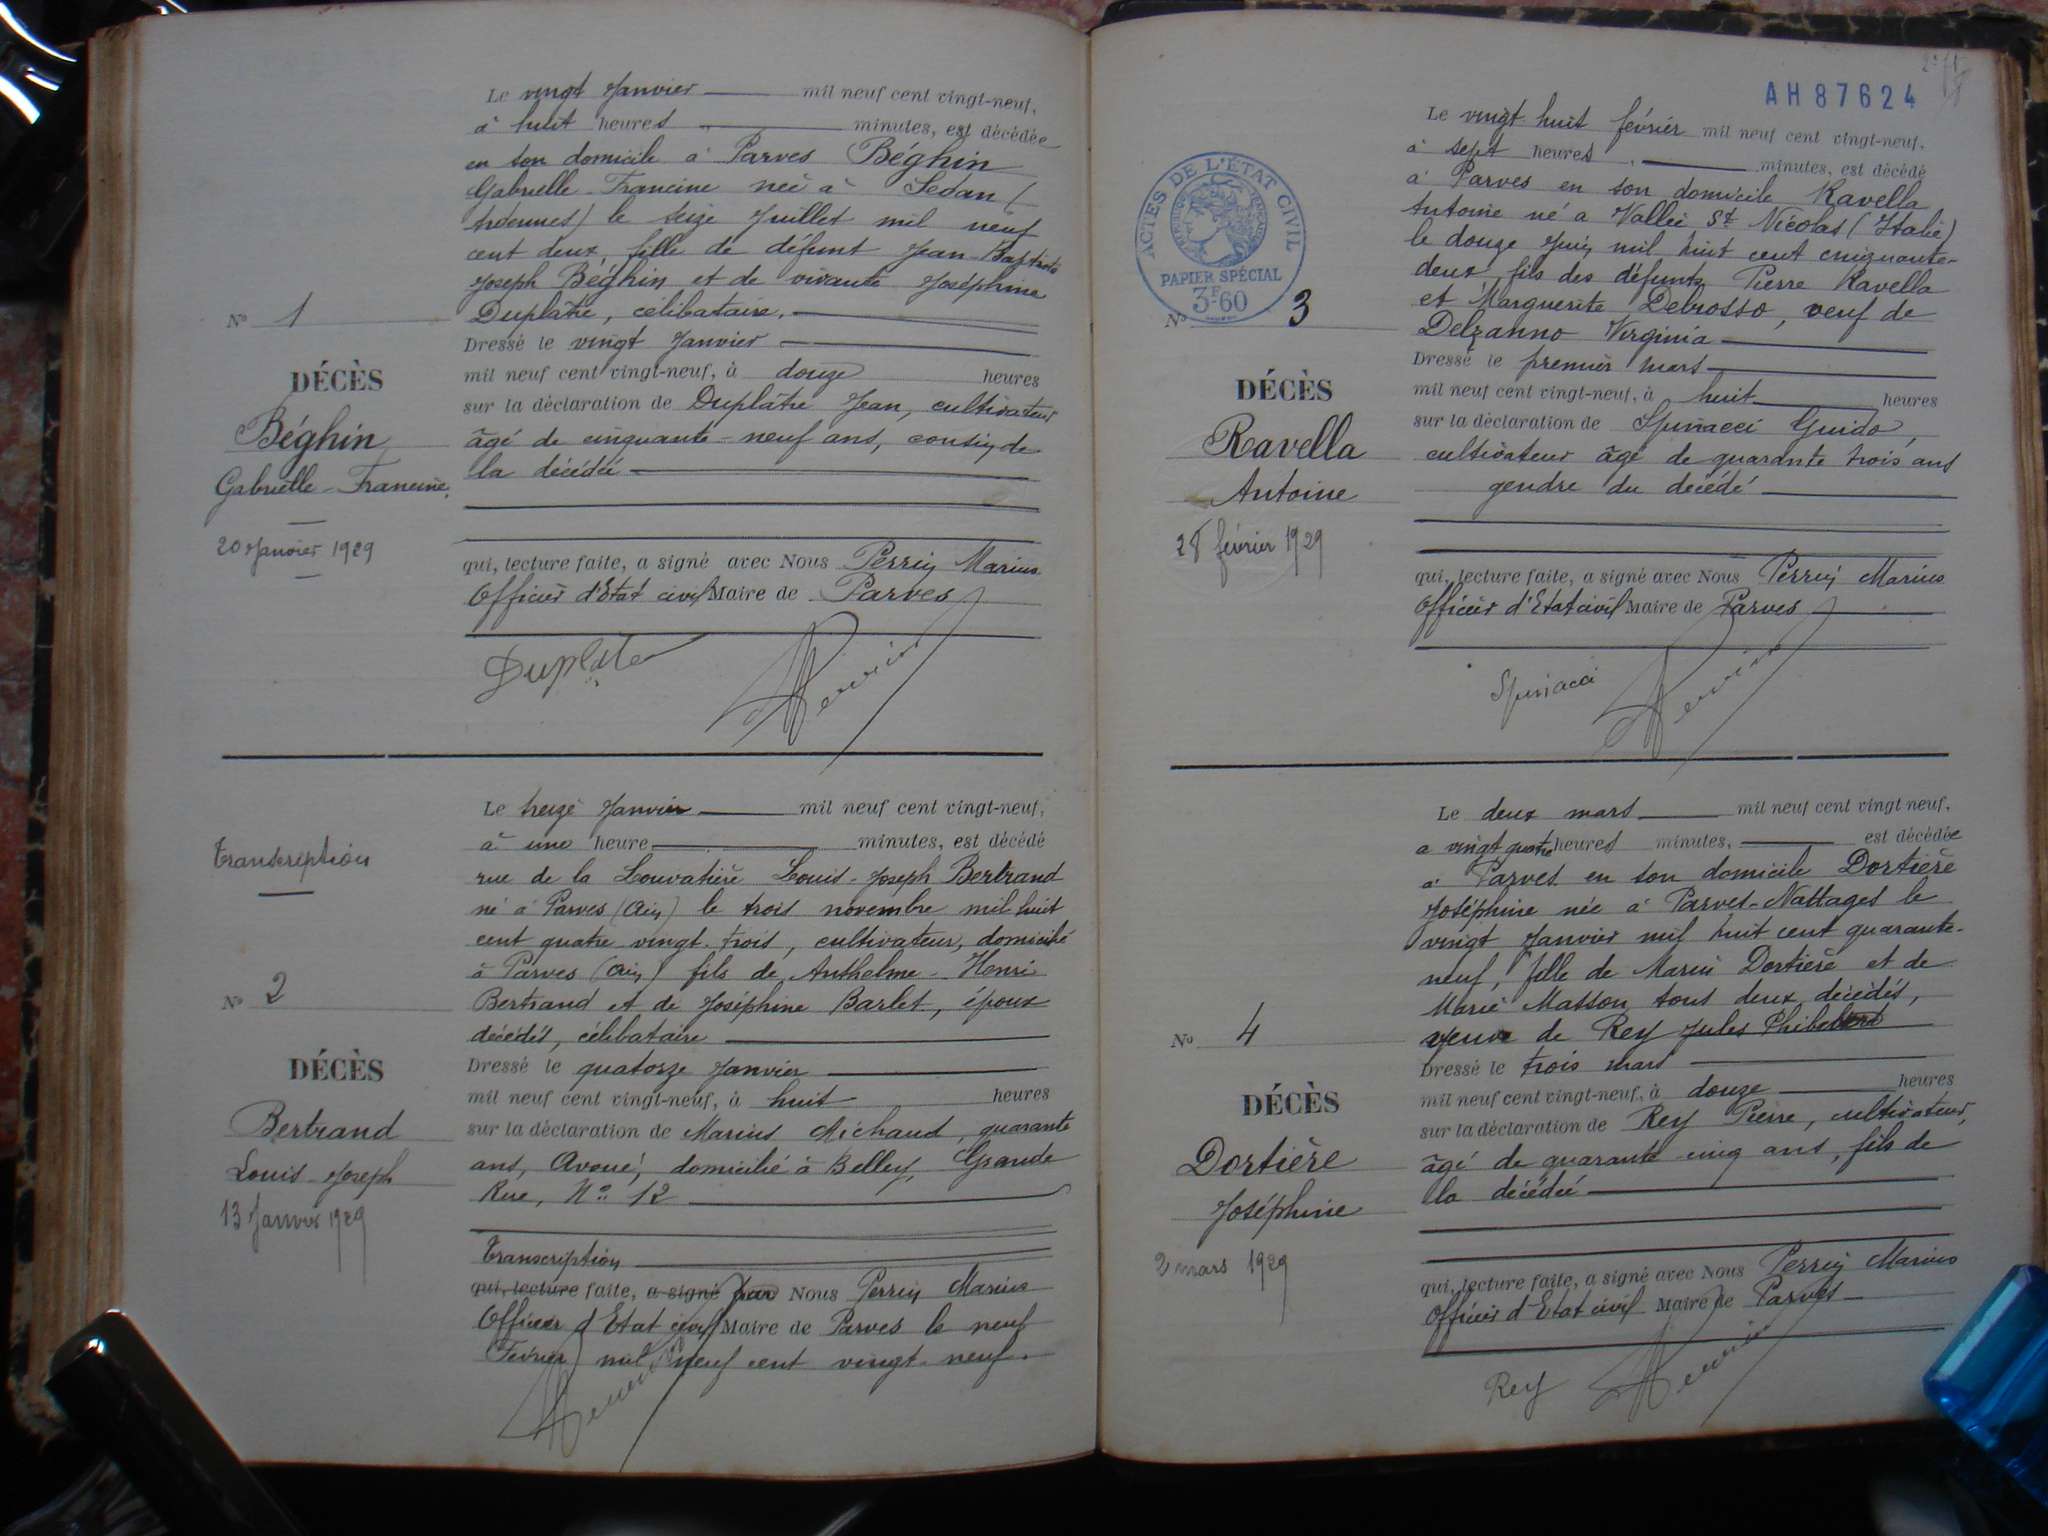 Le vingt Janvier mil neuf cent vingt-neuf,
à huit heures minutes, est décédée
en son domicile à Parves Béghin
Gabrielle-Francine neé à Sedan (
Ardennes) le seize Juillet mil neuf
cent deux, fille de défunt Jean-Baptiste
Joseph Béghin et de vivante Joséphine
Duplatre, célibataire.
Nº 1
Dressé le vingt Janvier
mil neuf cent vingt-neuf, à douze heures
DÉCÈS
sur la déclaration de Duplâtre Jean, cultivateur
Béghin
âgé de cinquante-neuf ans, cousin de
Gabrielle-Francine
la décédée
20 Janvier 1929
qui, lecture faite, a signé avec Nous Perrin Marius
Officier d'Etat civil Maire de Parves
Duplatre
Perrin
Le treize Janvier mil neuf cent vingt-neuf,
à une heure minutes, est décédé
Transcription
rue de la Louvatière Louis-Joseph Bertrand
né à Parves (Ain) le trois novembre mil huit
cent quatre vingt-trois, cultivateur, domicilié
à Parves (Ain) fils de Anthelme-Henri
Nº 2
Bertrand et de Joséphine Barlet, époux
décédés, célibataire
DÉCÈS
Dressé le quatorze Janvier
mil neuf cent vingt-neuf, à huit heures
Bertrand
sur la déclaration de Marius Michaud, quarante
Louis-Joseph
ans, Avoué, domicilié à Belley, Grande
13 Janvier 1929
Rue, Nº 12
Transcription
qui, lecture faite, a signé par Nous Perrin Marius
Officier d'Etat civil Maire de Parves le neuf
Février mil neuf cent vingt-neuf.
Perrin
AH87624
Le vingt huit février mil neuf cent vingt-neuf,
à sept heures minutes, est décédé
à Parves en son domicile Ravella
Antoine né à Vallée St Nicolas (Italie)
le douze Juin mil huit cent cinquante-
deux, fils des défunts Pierre Ravella
et Marguerite Delrosso, veuf de
Delzanno Virginia
ACTES DE L'ÉTAT CIVIL
PAPIER SPÉCIAL
3F60
Nº 3
Dressé le premier mars
mil neuf cent vingt-neuf, à huit heures
DÉCÈS
sur la déclaration de Spinacci Guido,
Ravella
cultivateur âgé de quarante trois ans
Antoine
gendre du décédé
28 février 1929
qui, lecture faite, a signé avec Nous Perrin Marius
Officier d'Etat civil Maire de Parves
Spinacci
Perrin
Le deux mars mil neuf cent vingt-neuf,
à vingt quatre heures minutes, est décédée
à Parves en son domicile Dortière
Joséphine née à Parves-Nattages le
vingt Janvier mil huit cent quarante-
neuf, fille de Marin Dortière et de
Marie Masson tous deux décédés,
veuve de Rey Jules Philibert
Nº 4
Dressé le trois mars
mil neuf cent vingt-neuf, à douze heures
DÉCÈS
sur la déclaration de Rey Pierre, cultivateur,
Dortière
âgé de quarante cinq ans, fils de
Joséphine
la décédée
2 mars 1929
qui, lecture faite, a signé avec Nous Perrin Marius
Officier d'Etat civil Maire de Parves
Rey
Perrin